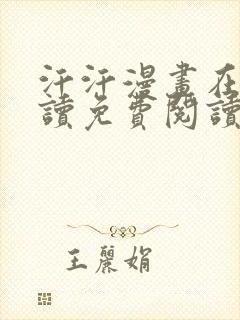 汗汗漫畫在
讀免費閱讀
王麗娟